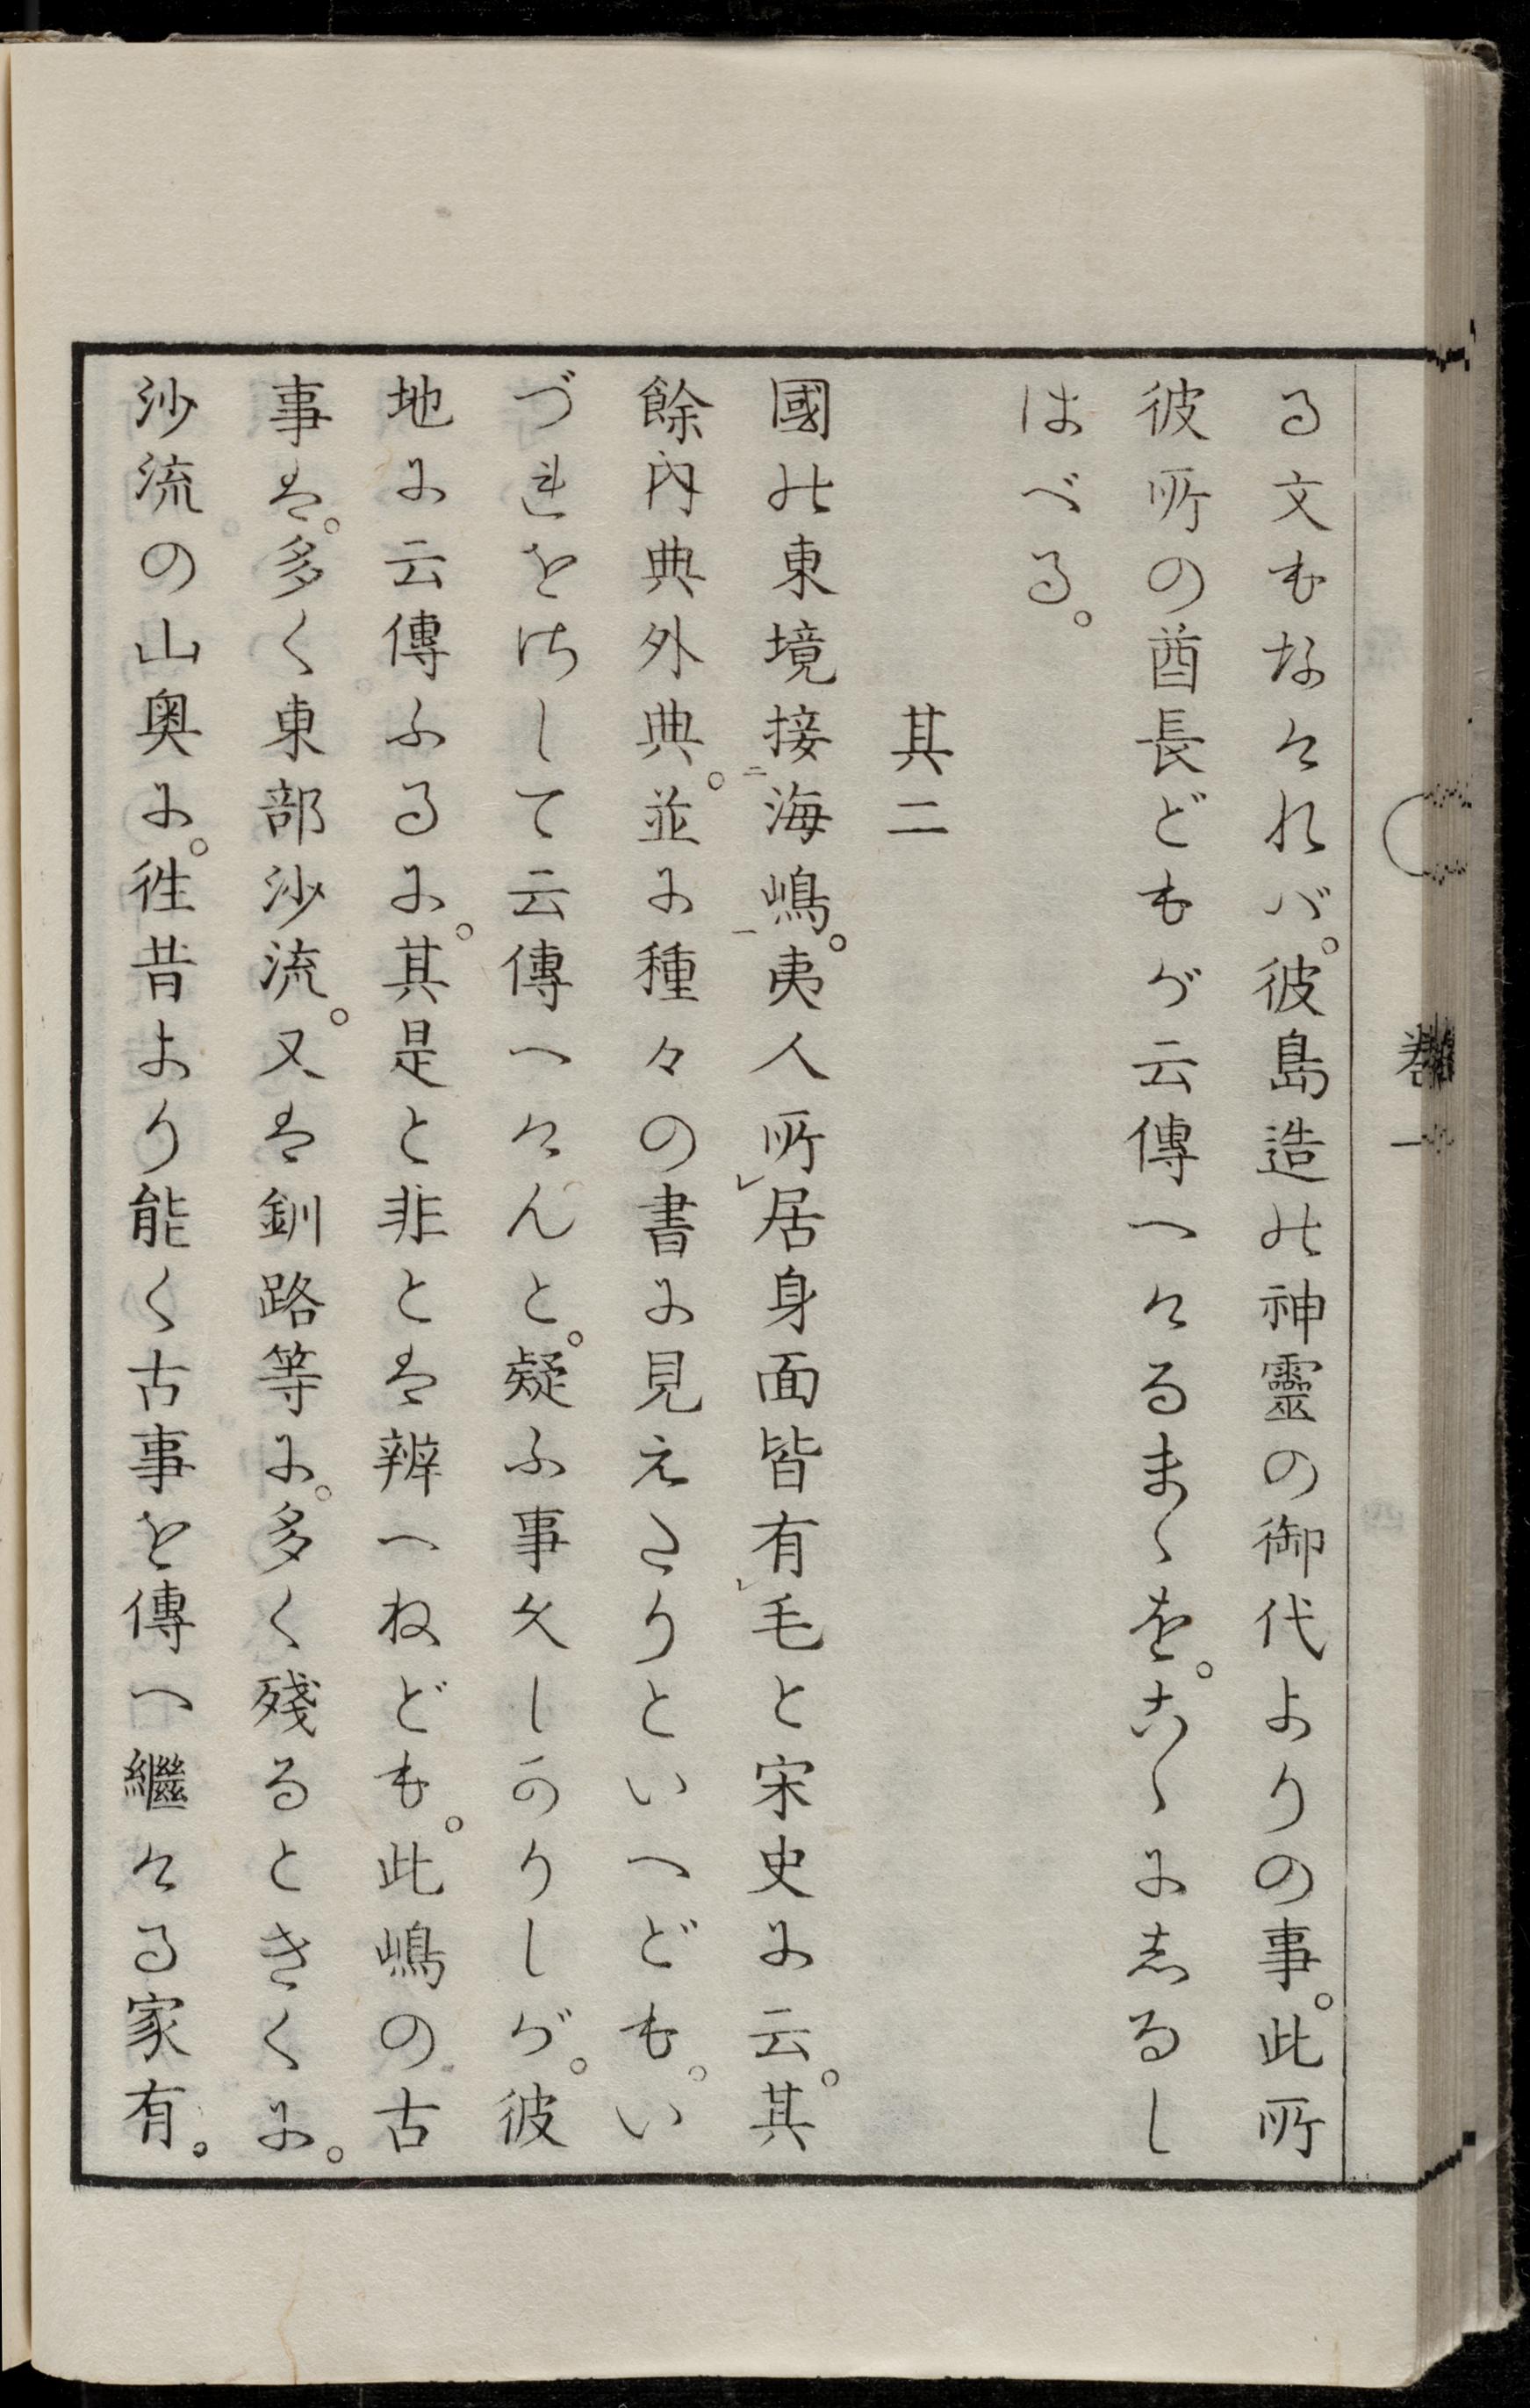 巻一
る文もなければ。彼島造の神靈の御代よりの事。此所
彼所の酋長どもが云傳へけるまゝを。こゝにしるし
はべる。
其二
國の東境接二海嶋一。夷人所レ居身面皆有レ毛と宋史に云。其
餘內典外典。並に種々の書に見えたりといへども。い
づれをけして云傳へけんと。疑ふ事久しかりしが。彼
地に云傳ふるに。其是と非とは辨へねども。此嶋の古
事は。多く東部沙流。又は釧路等に。多く殘るときくに。
沙流の山奥に。徃昔より能く古事を傳へ繼ける家有。